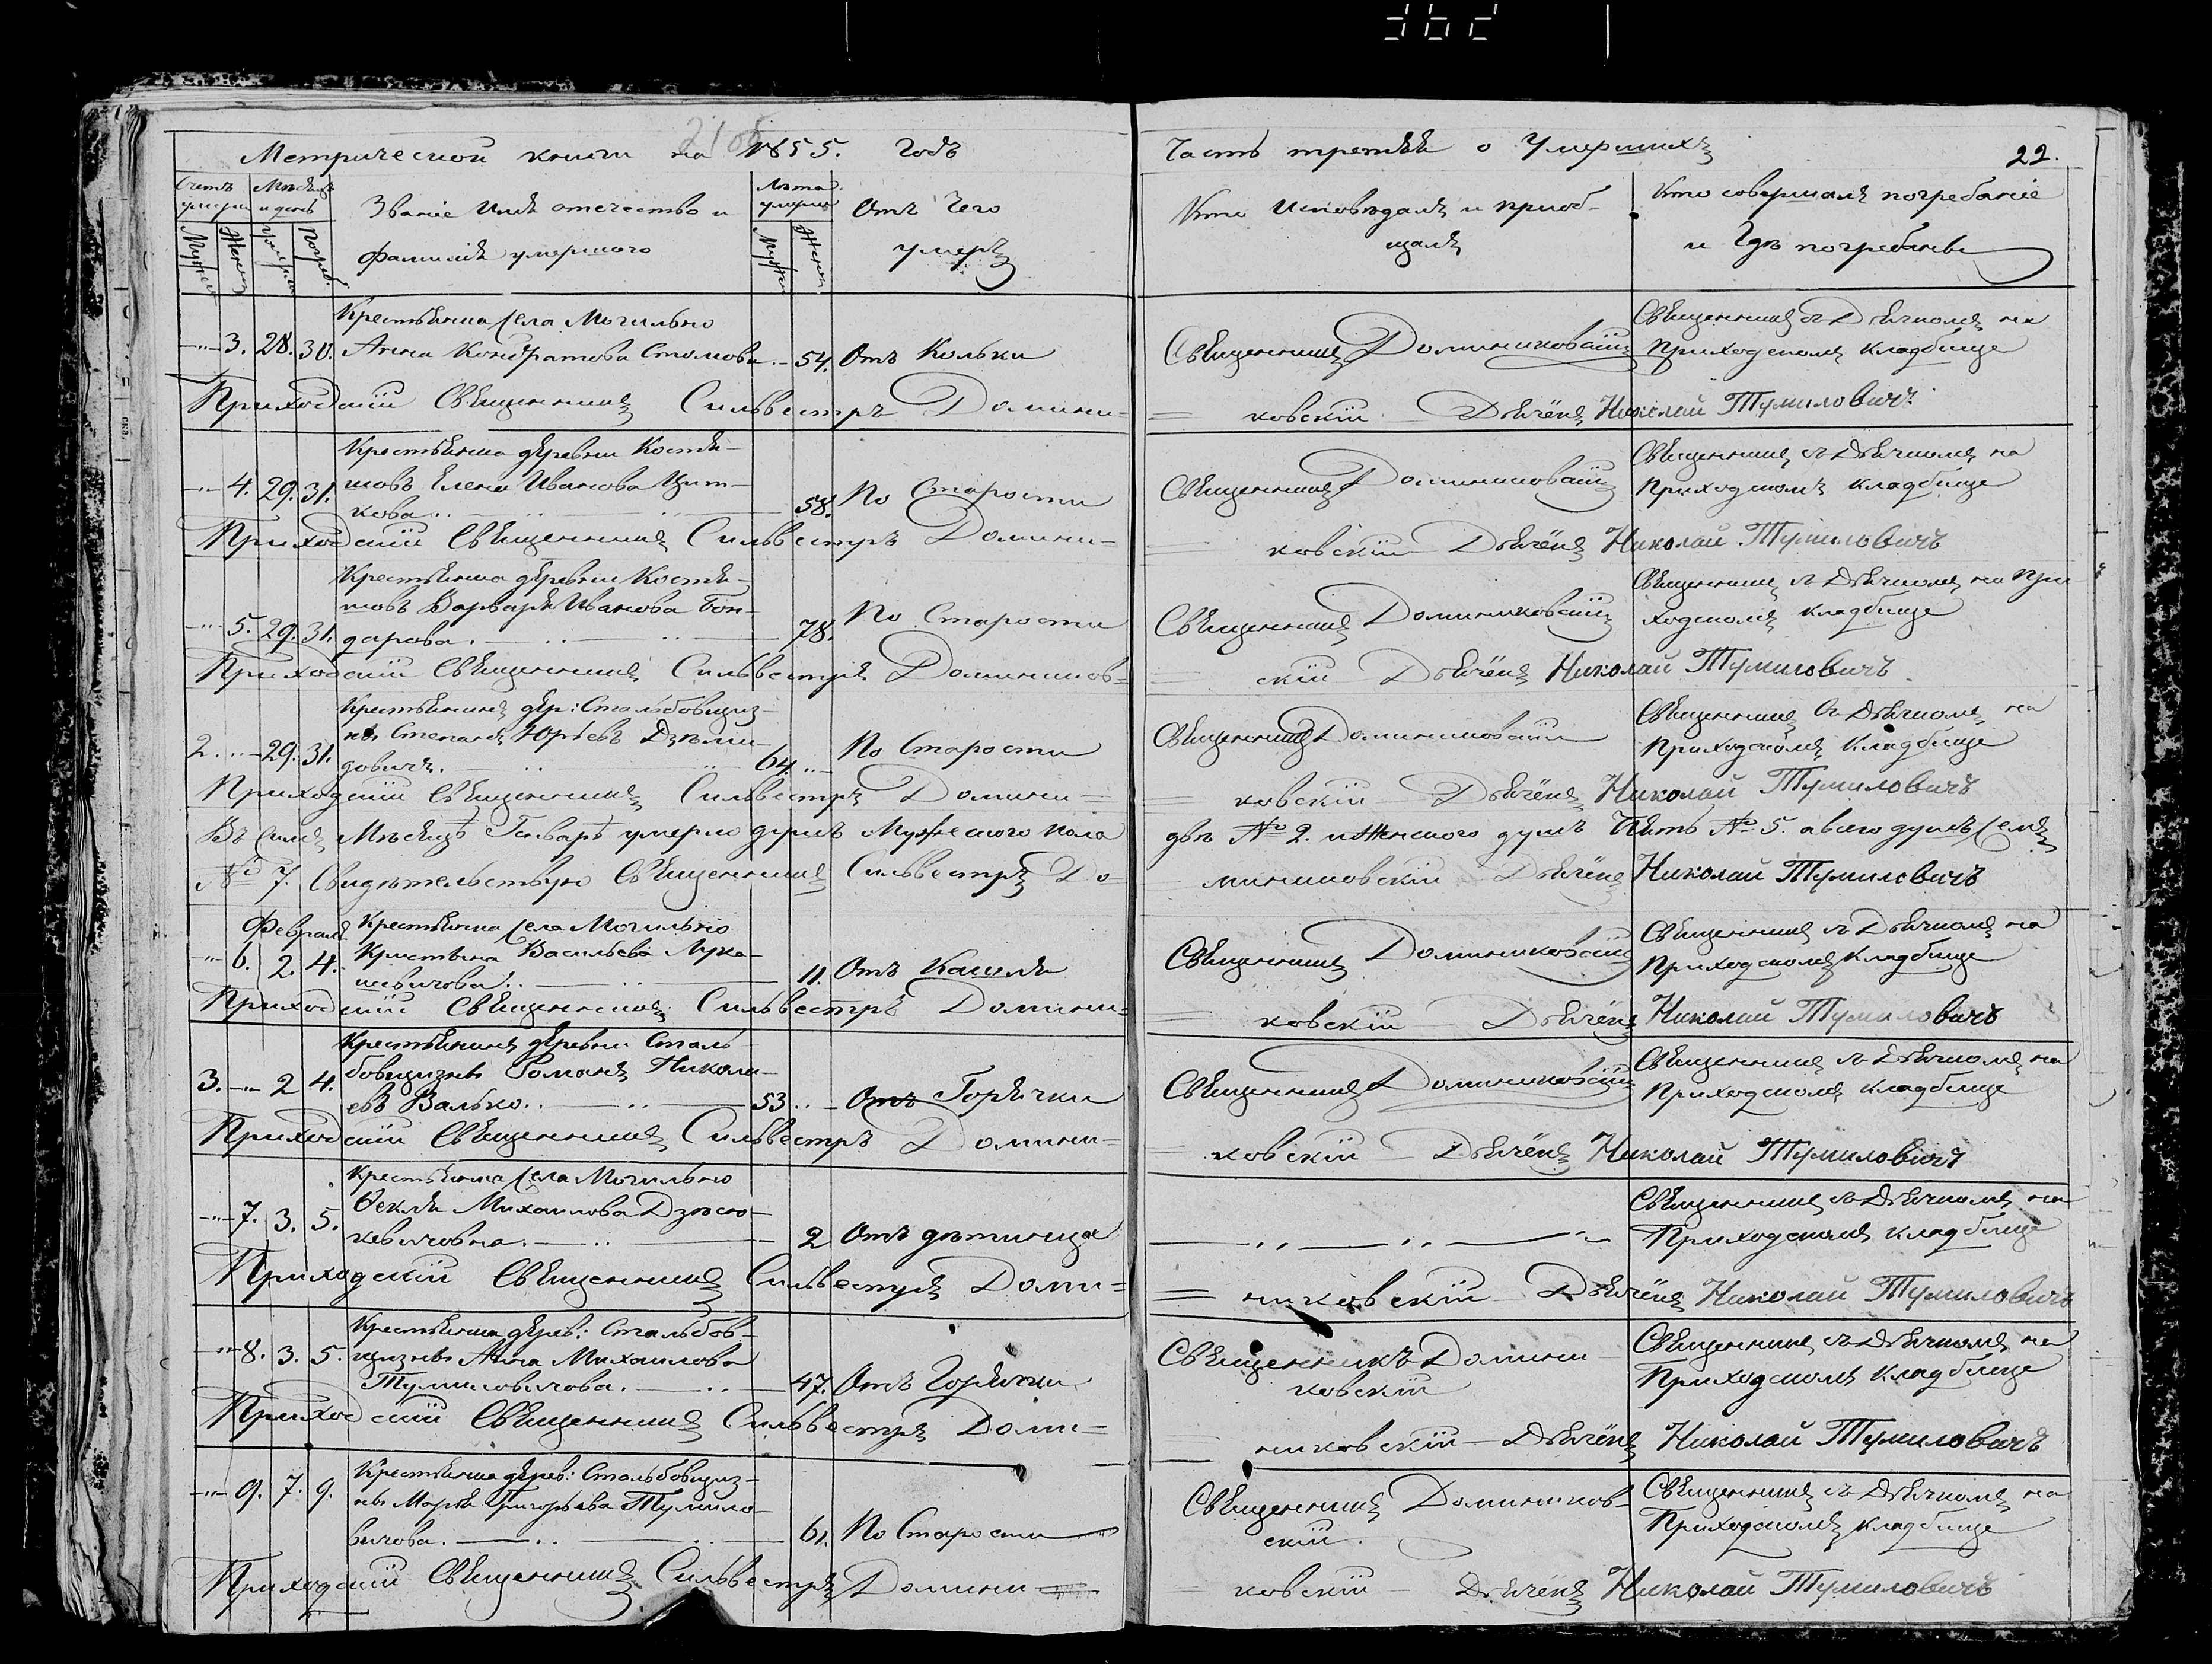 Метрической книги на 1855. Годъ
Часть третья о Умершихъ
22.
Счетъ умерш
Мѣсяцъ и день
Званіе Имя отечество и
фамилія умершаго
Лѣта умерш
Отъ Чего
умеръ
Кто Исповѣдалъ и приоб-
щалъ
Кто совершалъ погребаніе
и Гдѣ погребаны
Мужеск
Женск
Умерш
Погреб.
Муж
Женск
Крестьянка Села Могильно
3. 28. 30. Анна Кондратова Стомова 54. Отъ Кольки
Священникъ Доминиковскій
Священникъ съ Дьячкомъ на
Приходскомъ кладбище
Приходскій Священникъ Сильвестръ Домини=
=ковскій Дьячёкъ Николай Тумиловичъ
Крестьянка деревни Костя-
4. 29. 31. шовъ Елена Иванова Цит-
кова 58. По Старости
Священникъ Доминиковскій
Священникъ съ Дьячкомъ на
Приходскомъ кладбище
Приходскій Священникъ Сильвестръ Домини=
=ковскій Дьячёкъ Николай Тумиловичъ
Крестьянка деревни Костя-
шовъ Варвара Иванова Бон-
5. 29. 31. дарова. 78. По Старости
Священникъ Доминиковскій
Священникъ съ Дьячкомъ на При
ходскомъ кладбище
Приходскій Священникъ Сильвестръ Домиников=
=скій Дьячёкъ Николай Тумиловичъ
Крестьянинъ дер: Стальбовщиз-
ны Степанъ Юрьевъ Дземи-
2. 29. 31. довичъ. 64. По Старости
Священникъ Доминиковскій
Священникъ съ Дьячкомъ на
Приходскомъ Кладбище
Приходскій Священникъ Сильвестръ Домини=
=ковскій Дьячёкъ Николай Тумиловичъ
Въ семъ Мѣсяцѣ Генварѣ умерло душъ Мужескаго пола
двѣ № 2. и Женского душъ Пять № 5. а всего душъ Семь
№ 7. Свидѣтельствую Священникъ Сильвестръ До=
миниковскій Дьячёкъ Николай Тумиловичъ
Февраля
Крестьянка Села Могильно
6. 2. 4. Кристына Васильева Лука-
шевичова. 11. Отъ Кашля
Священникъ Доминиковскій
Священникъ съ Дьячкомъ на
Приходскомъ кладбище
Приходскій Священникъ Сильвестръ Домини=
=ковскій Дьячёкъ Николай Тумиловичъ
Крестьянинъ деревни Сталь
3. 2 4. бовщизны Романъ Никола-
евъ Валько. 53 Отъ Горячки
Священникъ Доминиковскій
Священникъ съ Дьячкомъ на
Приходскомъ кладбище
Приходскій Священникъ Сильвестръ Домини=
=ковскій Дьячёкъ Николай Тумиловичъ
Крестьянка Села Могильно
7. 3. 5. Ѳекля Михаилова Дзею-
кевичовна. 2 Отъ дѣтинца
Священникъ съ Дьячкомъ на
Приходскомъ кладбище
Приходскій Священникъ Сильвестръ Доми=
=никовскій Дьячёкъ Николай Тумиловичъ
Крестьянка дерев: Стальбов-
8. 3. 5. щизны Анна Михаилова
Тумиловичова. 47. Отъ Горячки
Священникъ Домини-
ковскій
Священникъ съ Дьячкомъ на
Приходскомъ кладбище
Приходскій Священникъ Сильвестръ Доми=
никовскій Дьячёкъ Николай Тумиловичъ
Крестьянка дерев: Стальбовщиз-
9. 7. 9. ны Марья Григорьева Тумило-
вичова. 61. По Старости
Священникъ Домиников-
скій.
Священникъ съ Дьячкомъ на
Приходскомъ кладбище
Приходскій Священникъ Сильвестръ Домини
=ковскій Дьячёкъ Николай Тумиловичъ